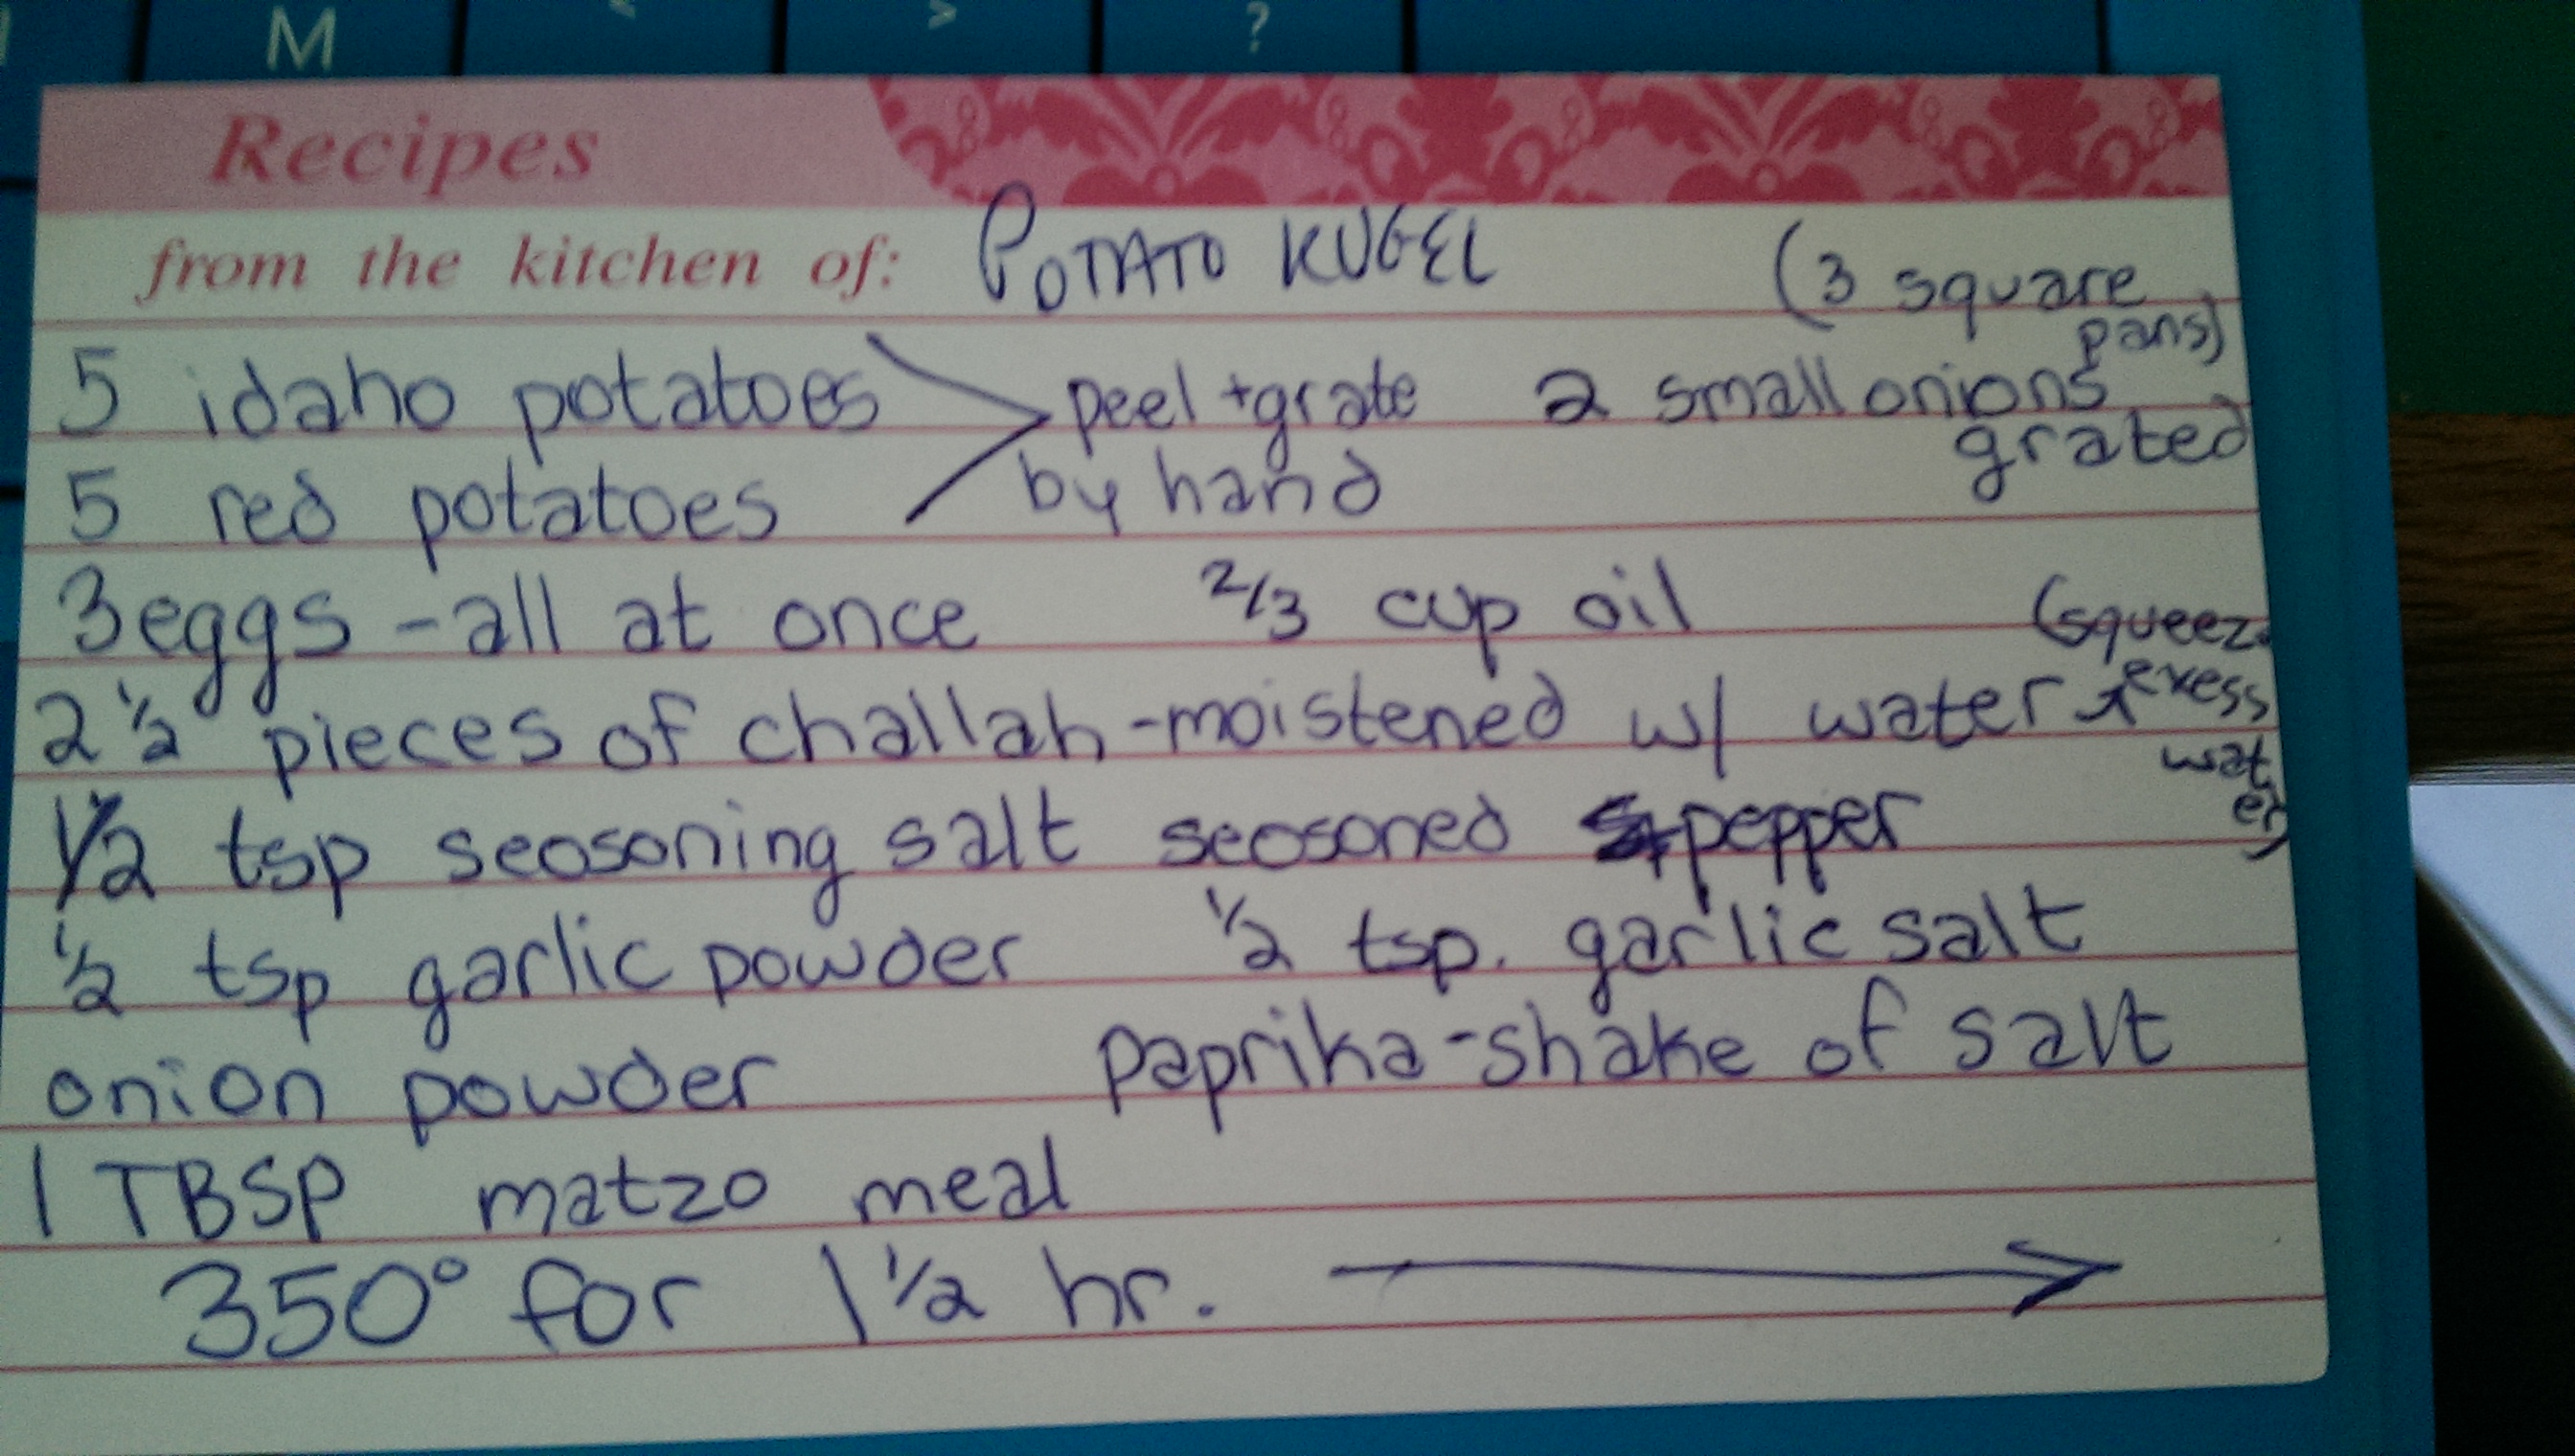 M < > ?
Recipes
from the kitchen of: POTATO KUGEL (3 square
pans)
5 idaho potatoes peel + grate 2 small onions
by hand grated
5 red potatoes
3 eggs - all at once 2/3 cup oil (squeeze
2 1/2 pieces of challah - moistened w/ water exess
wat
er)
1/2 tsp seosoning salt seosoned pepper
1/2 tsp garlic powder 1/2 tsp. garlic salt
onion powder paprika - shake of salt
1 TBSP matzo meal
350° for 1 1/2 hr. →